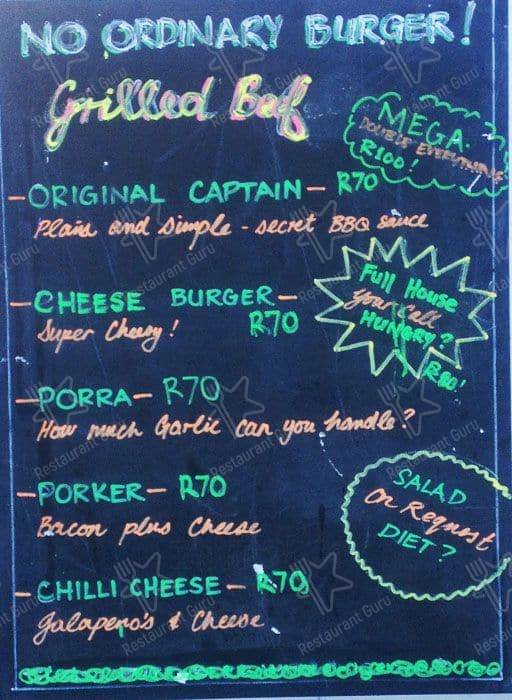 NO ORDINARY BURGER!
Grilled Beef
MEGA.
DOUBLE EVERYTHING
R100!
—ORIGINAL CAPTAIN— R70
Plain and simple - secret BBQ sauce
—CHEESE BURGER—
Super Cheesy! R70
Full House
Your Call
HUNGRY?
R80!
—PORRA— R70
How much Garlic can you handle?
—PORKER— R70
Bacon plus Cheese
SALAD
On Request
DIET?
—CHILLI CHEESE— R70
Jalapeno's & Cheese
Restaurant Guru